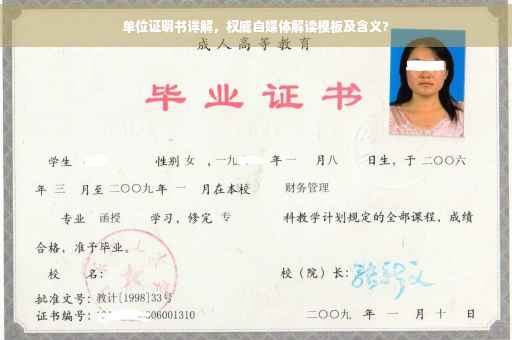 单位证明书详解，权威自媒体解读模板及含义？
成人高等教育
毕业证书
学生 性别 女 ，一九 年 一 月 八 日生，于 二〇〇六
年 三 月至 二〇〇九 年 一 月在本校 财务管理
专业 函授 学习，修完 专 科教学计划规定的全部课程，成绩
合格，准予毕业。
校 名： 校（院）长：
批准文号：教计[1998]33号
证书编号： 06001310 二〇〇九 年 一 月 十 日